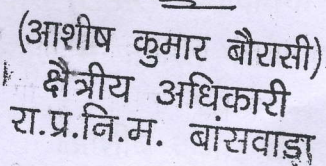 (आशीष कुमार बौरासी)
क्षैत्रीय अधिकारी
रा.प्र.नि.म. बांसवाड़ा